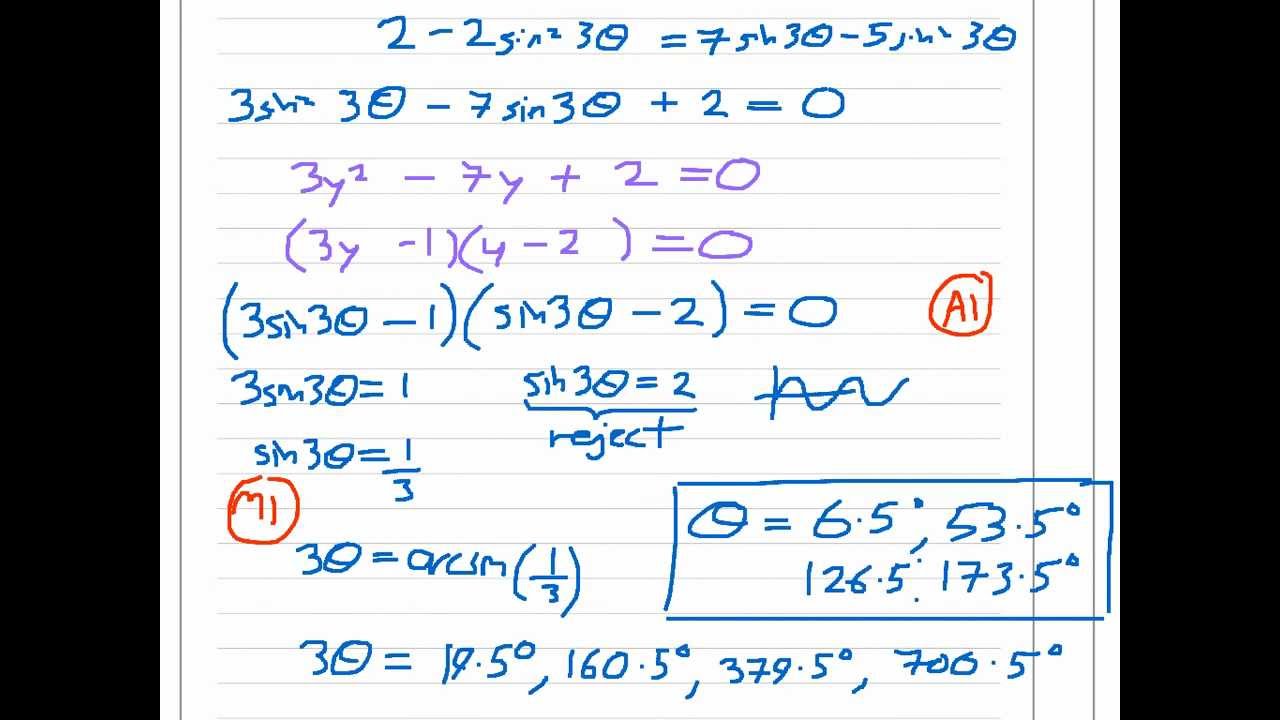 2 - 2sin² 3θ = 7sin3θ - 5sin² 3θ
3sin² 3θ - 7sin3θ + 2 = 0
3y² - 7y + 2 = 0
(3y - 1)(y - 2) = 0
(3sin3θ - 1)(sin3θ - 2) = 0
A1
3sin3θ = 1
sin3θ = 2
reject
sin3θ = 1/3
M1
3θ = arcsin(1/3)
θ = 6.5°, 53.5°
126.5° 173.5°
3θ = 19.5°, 160.5°, 379.5°, 700.5°